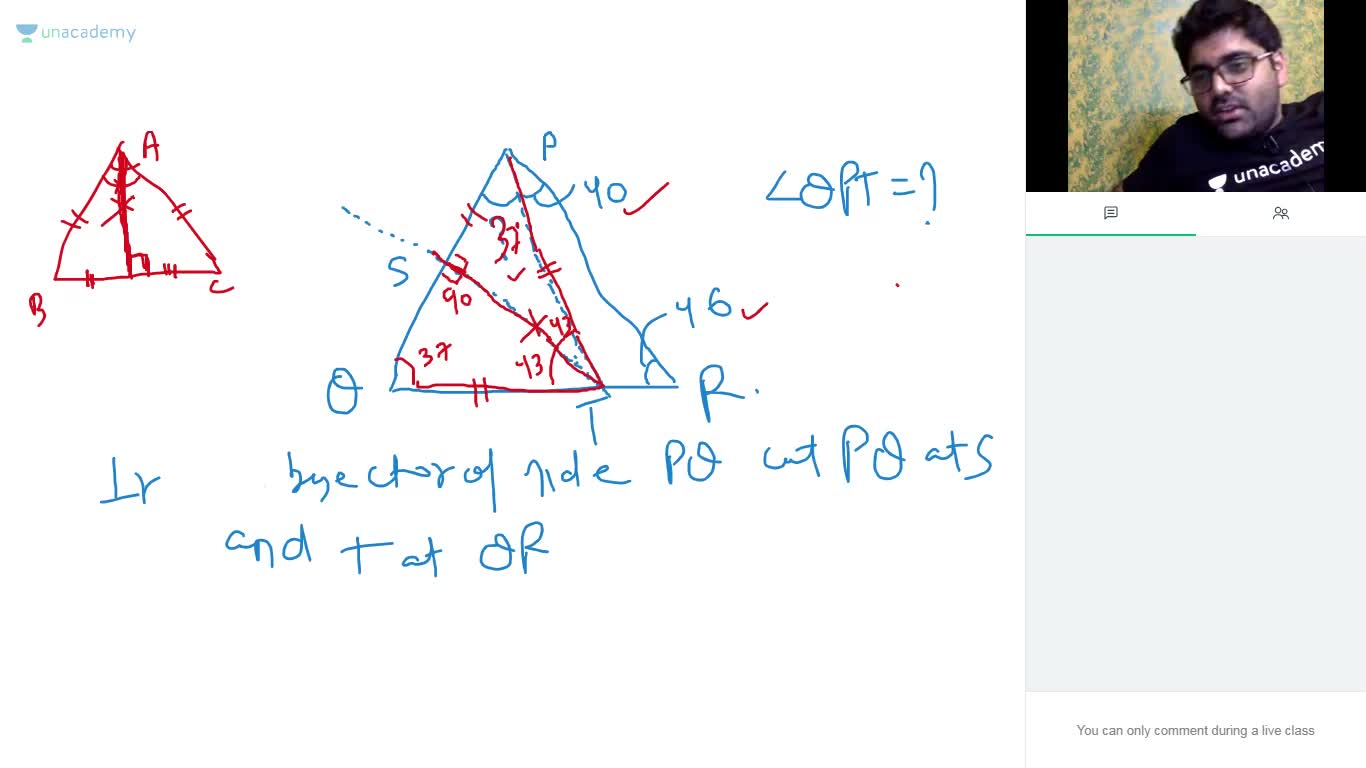 unacademy
A
B
C
P
40
∠QPT = ?
37
S
90
43
43
37
46
Q
T
R
⊥r bisector of side PQ cut PQ at S
and T at QR
unacademy
You can only comment during a live class